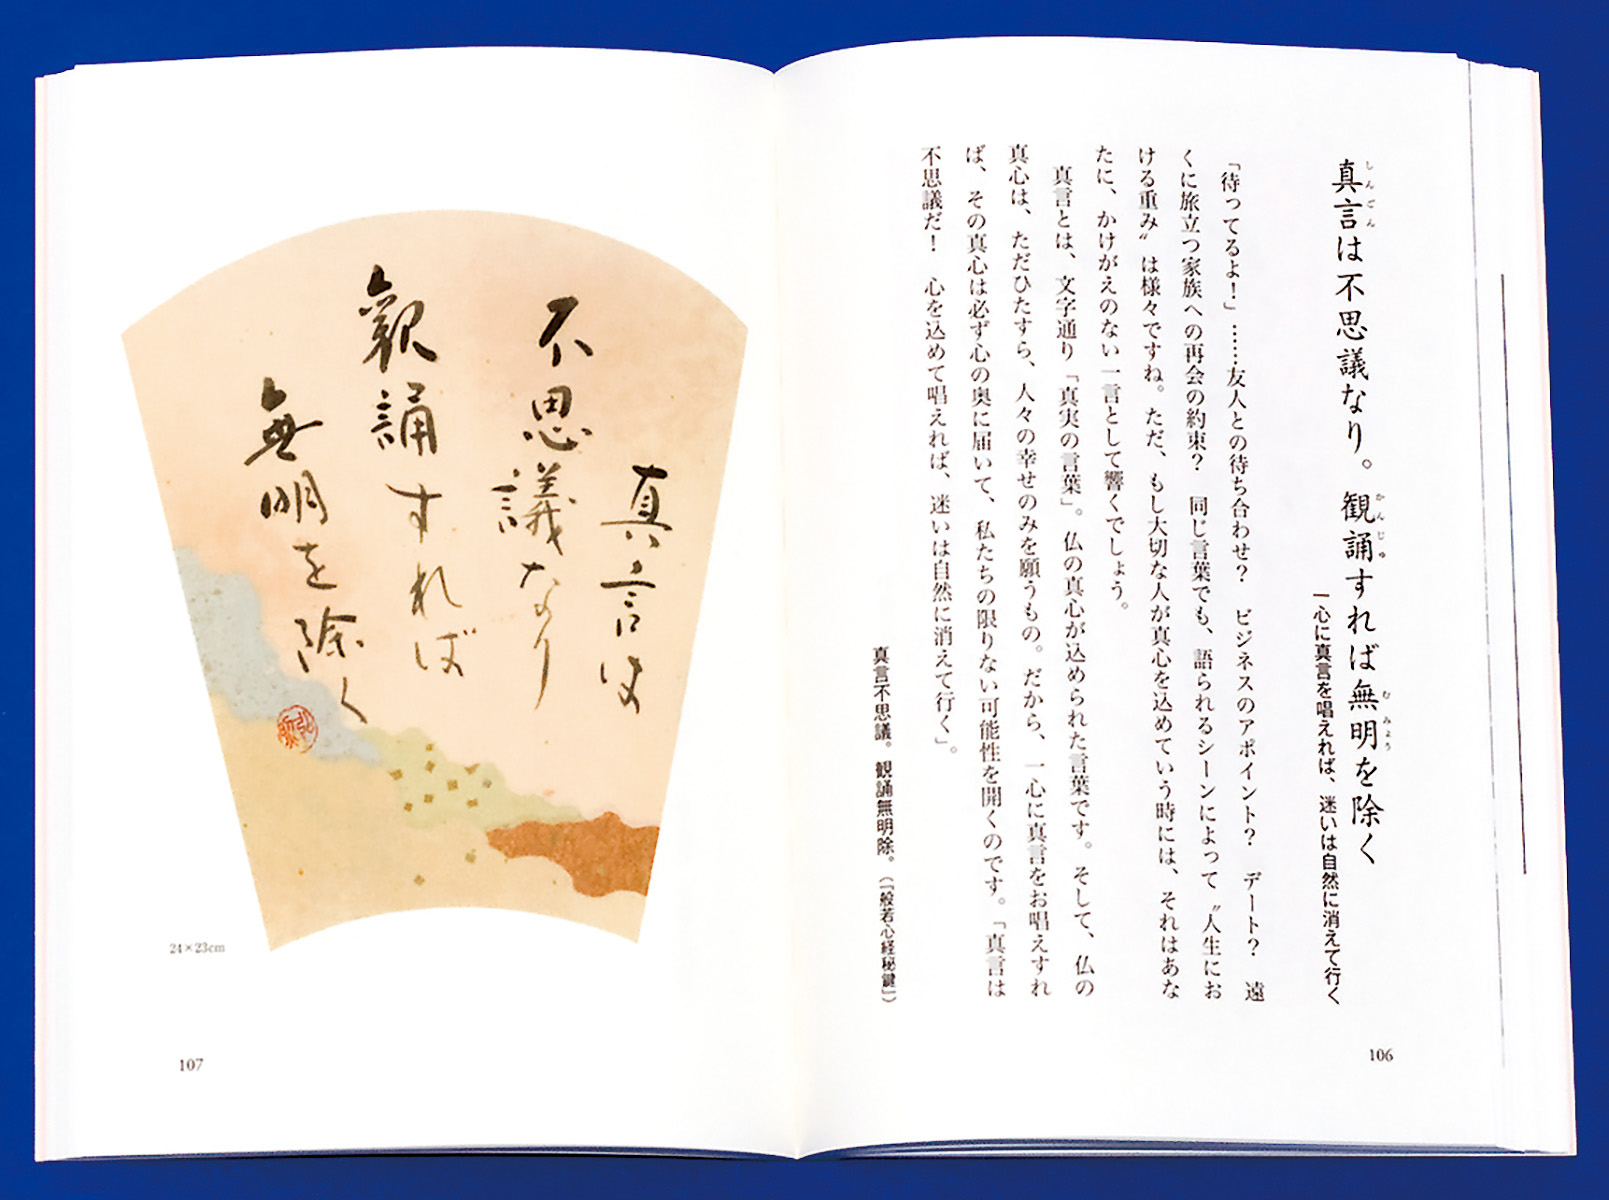 真言は不思議なり。観誦すれば無明を除く
しんごん
かんじゅ
むみょう
一心に真言を唱えれば、迷いは自然に消えて行く
「待ってるよ！」……友人との待ち合わせ？　ビジネスのアポイント？　デート？　遠
くに旅立つ家族への再会の約束？　同じ言葉でも、語られるシーンによって〝人生にお
ける重み〟は様々ですね。ただ、もし大切な人が真心を込めていう時には、それはあな
たに、かけがえのない一言として響くでしょう。
真言とは、文字通り「真実の言葉」。仏の真心が込められた言葉です。そして、仏の
真心は、ただひたすら、人々の幸せのみを願うもの。だから、一心に真言をお唱えすれ
ば、その真心は必ず心の奥に届いて、私たちの限りない可能性を開くのです。「真言は
不思議だ！　心を込めて唱えれば、迷いは自然に消えて行く」。
真言不思議。観誦無明除。（『般若心経秘鍵』）
106
真言は
不思議なり
観誦すれば
無明を除く
24×23cm
107